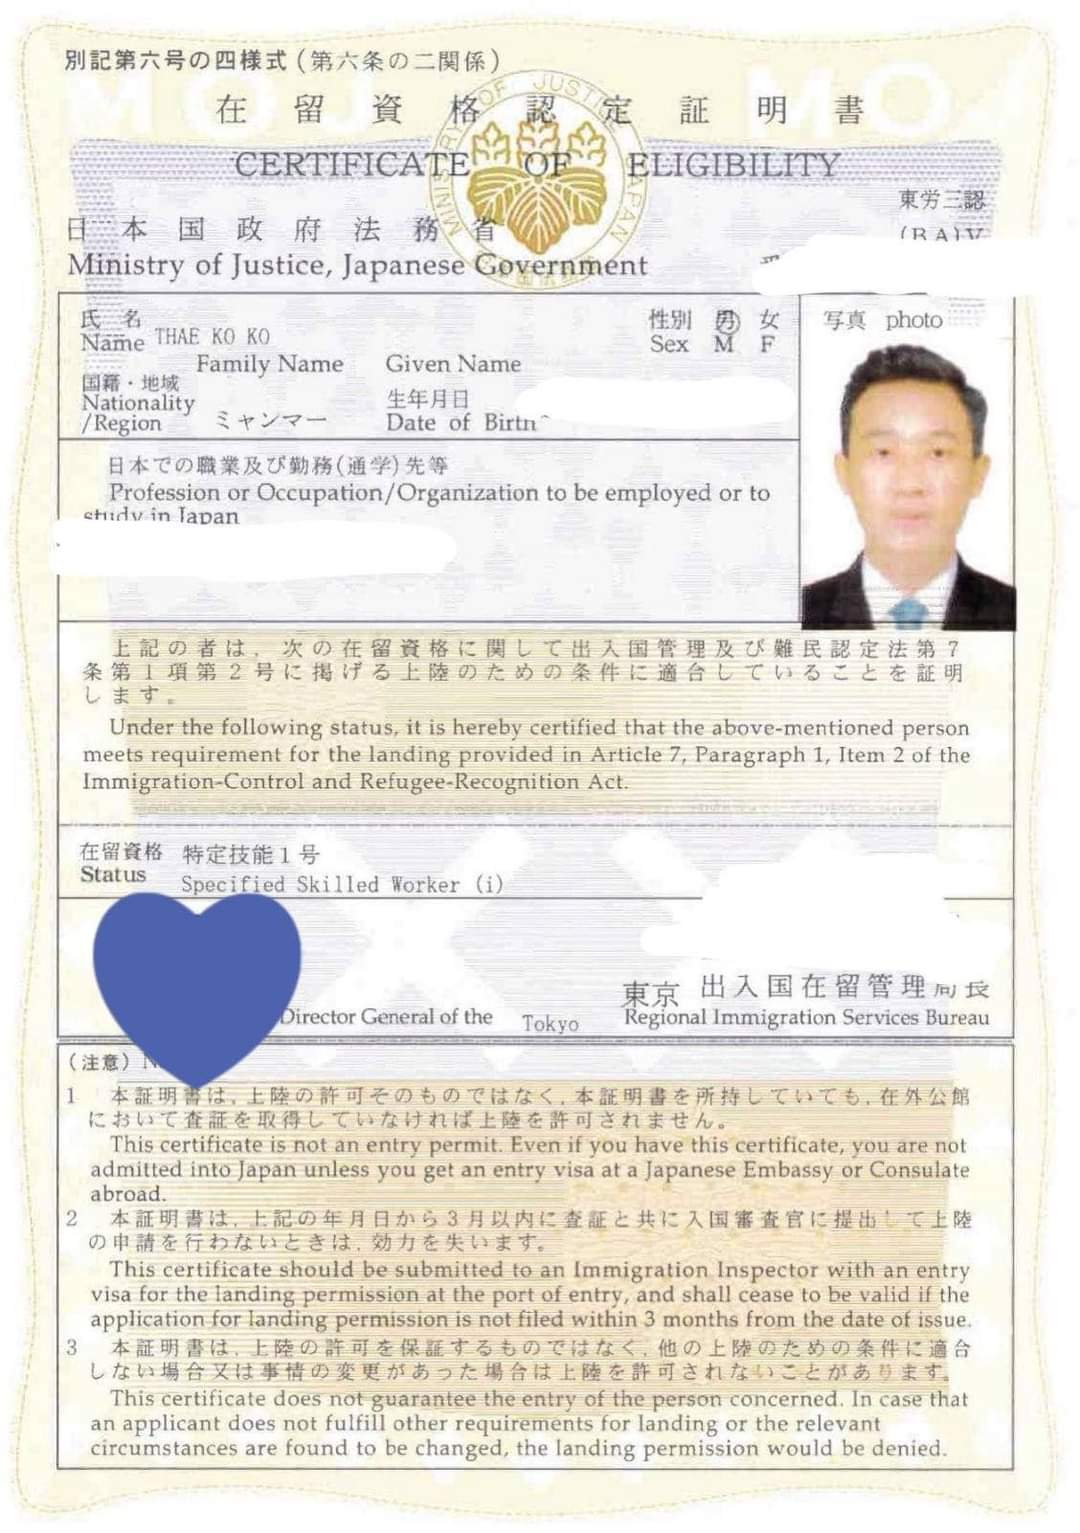 別記第六号の四様式(第六条の二関係)
在留資格認定証明書
CERTIFICATE OF ELIGIBILITY
東労三認
(BA)V
日本国政府法務省
Ministry of Justice, Japanese Government
MINISTRY OF JUSTICE JAPAN
氏名
Name THAE KO KO
Family Name Given Name
性別 男 女
Sex M F
写真 photo
国籍・地域
Nationality
/Region ミャンマー
生年月日
Date of Birth
日本での職業及び勤務(通学)先等
Profession or Occupation/Organization to be employed or to
study in Japan
上記の者は、次の在留資格に関して出入国管理及び難民認定法第7
条第1項第2号に掲げる上陸のための条件に適合していることを証明
します。
Under the following status, it is hereby certified that the above-mentioned person
meets requirement for the landing provided in Article 7, Paragraph 1, Item 2 of the
Immigration-Control and Refugee-Recognition Act.
在留資格 特定技能1号
Status Specified Skilled Worker (i)
東京 出入国在留管理局長
Director General of the Tokyo Regional Immigration Services Bureau
(注意)
1 本証明書は、上陸の許可そのものではなく、本証明書を所持していても、在外公館
において査証を取得していなければ上陸を許可されません。
This certificate is not an entry permit. Even if you have this certificate, you are not
admitted into Japan unless you get an entry visa at a Japanese Embassy or Consulate
abroad.
2 本証明書は、上記の年月日から3月以内に査証と共に入国審査官に提出して上陸
の申請を行わないときは、効力を失います。
This certificate should be submitted to an Immigration Inspector with an entry
visa for the landing permission at the port of entry, and shall cease to be valid if the
application for landing permission is not filed within 3 months from the date of issue.
3 本証明書は、上陸の許可を保証するものではなく、他の上陸のための条件に適合
しない場合又は事情の変更があった場合は上陸を許可されないことがあります。
This certificate does not guarantee the entry of the person concerned. In case that
an applicant does not fulfill other requirements for landing or the relevant
circumstances are found to be changed, the landing permission would be denied.